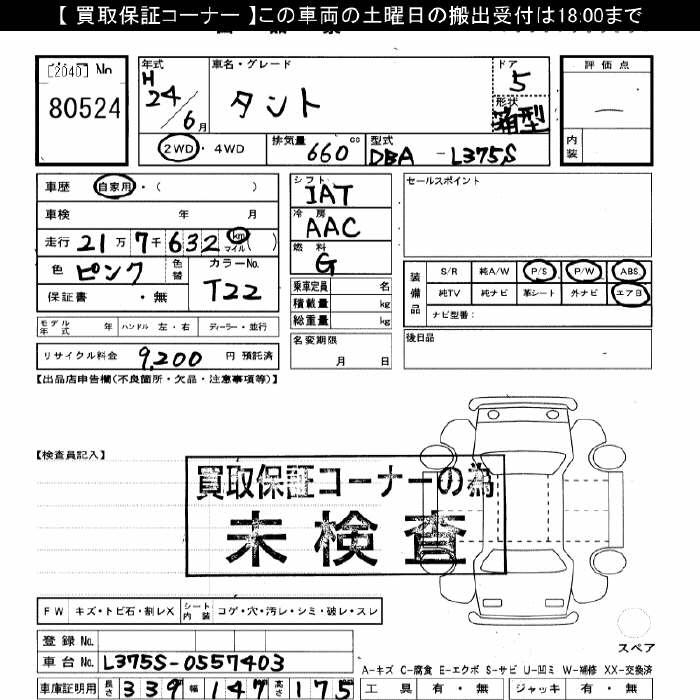 【 買取保証コーナー 】この車両の土曜日の搬出受付は18:00まで
[2040] No 80524
年式 H 24/6月
車名・グレード タント
ドア 5
形状 箱型
評価点 —
内装
2WD ・ 4WD
排気量 660 cc
型式 DBA - L375S
車歴 自家用・( )
車検 年 月
走行 21万7千632 km マイル ( )
色 ピンク 色替
カラーNo. T22
保証書 ・ 無
シフト IAT
冷房 AAC
燃料 G
乗車定員 名
積載量 kg
総重量 kg
名変期限 月 日
セールスポイント
装備品
S/R 純A/W P/S P/W ABS
純TV 純ナビ 革シート 外ナビ エアB
ナビ型番：
後日品
モデル年式 年 ハンドル 左・右 ディーラー・並行
リサイクル料金 9,200 円 預託済
【出品店申告欄(不良箇所・欠品・注意事項等)】
【検査員記入】
買取保証コーナーの為
未検査
FW キズ・トビ石・割レX シート内装 コゲ・穴・汚レ・シミ・破レ・スレ
登録 No.
車台 No. L375S-0557403
スペア
A-キズ C-腐食 E-エクボ S-サビ U-凹ミ W-補修 XX-交換済
車庫証明用 長さ 339 幅 147 高さ 175
工具 有・無 ジャッキ 有・無